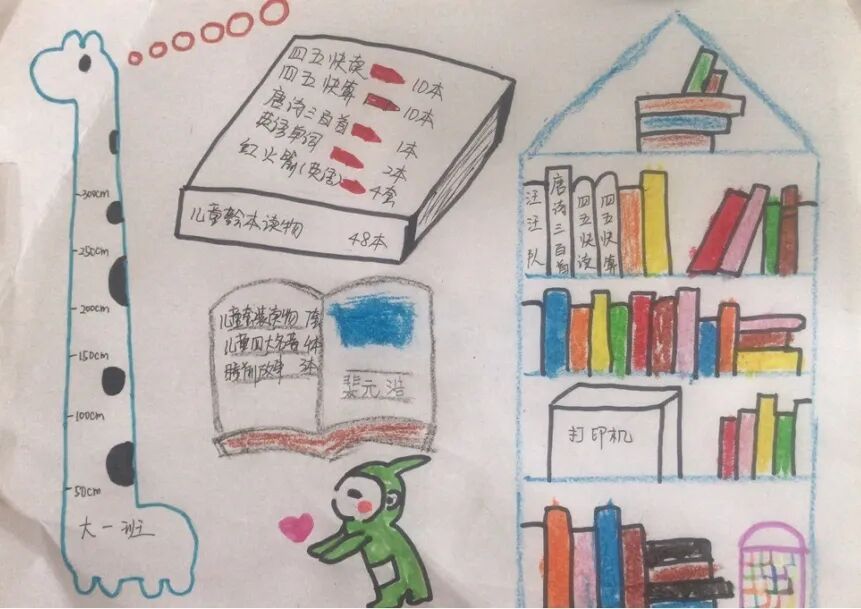 四五快读 10本
四五快算 10本
唐诗三百首 1本
英语单词 2本
红火箭(英语) 4套
儿童绘本读物 48本
儿童套装读物 7套
儿童四大名著 4本
睡前故事 3本
裴元浩
300cm
250cm
200cm
150cm
100cm
50cm
大一班
汪汪队
唐诗三百首
四五快读
四五快算
打印机